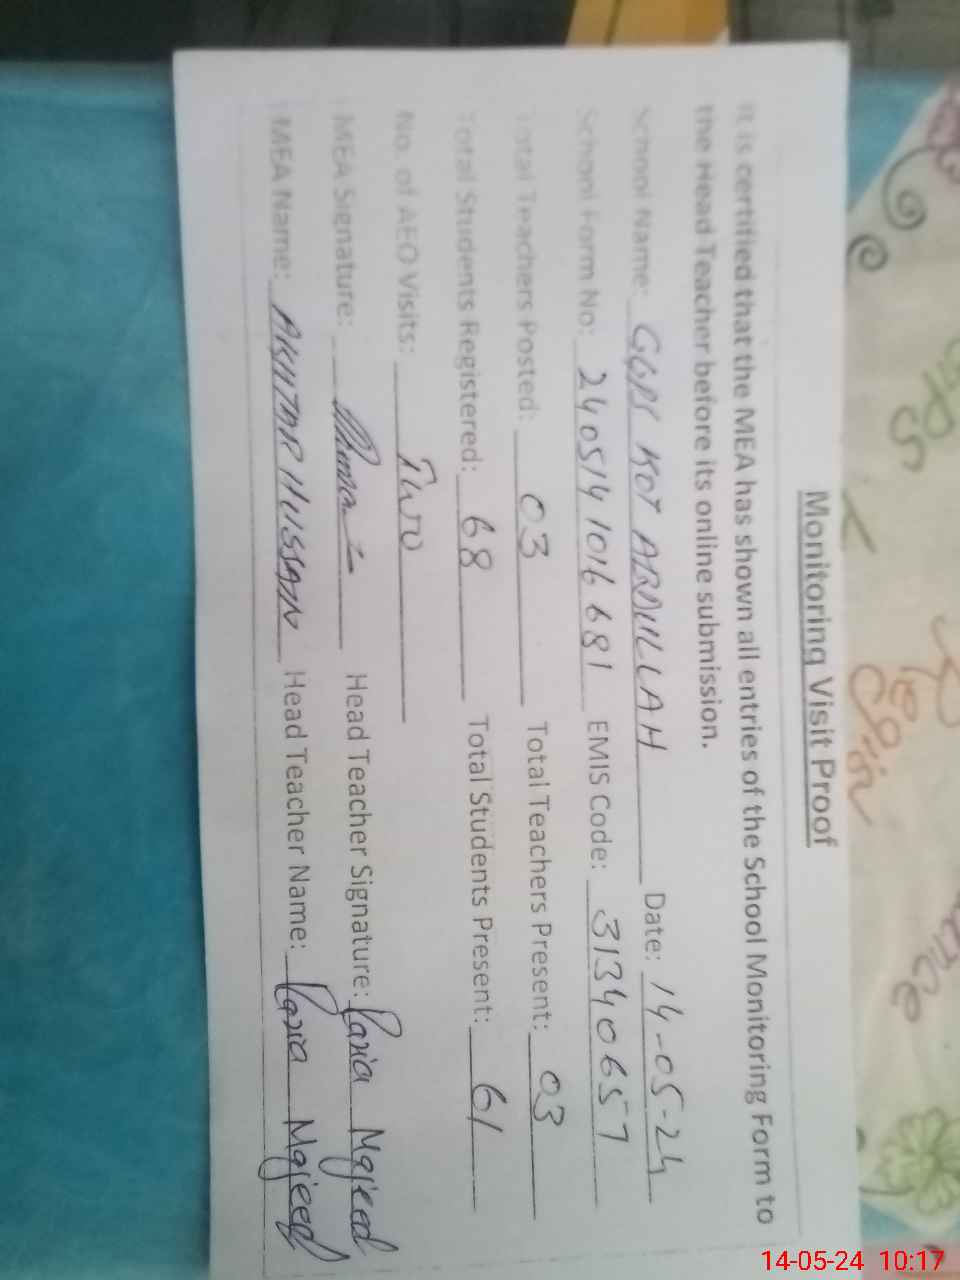 Monitoring Visit Proof
It is certified that the MEA has shown all entries of the School Monitoring Form to
the Head Teacher before its online submission.
School Name: GGPS KOT ABDULLAH Date: 14-05-24
School Form No: 240514 1016 681 EMIS Code: 31340657
Total Teachers Posted: 03 Total Teachers Present: 03
Total Students Registered: 68 Total Students Present: 61
No. of AEO Visits: Two
MEA Signature: Head Teacher Signature: Majeed
MEA Name: AKHTAR HUSSAIN Head Teacher Name: Majeed
14-05-24 10:17